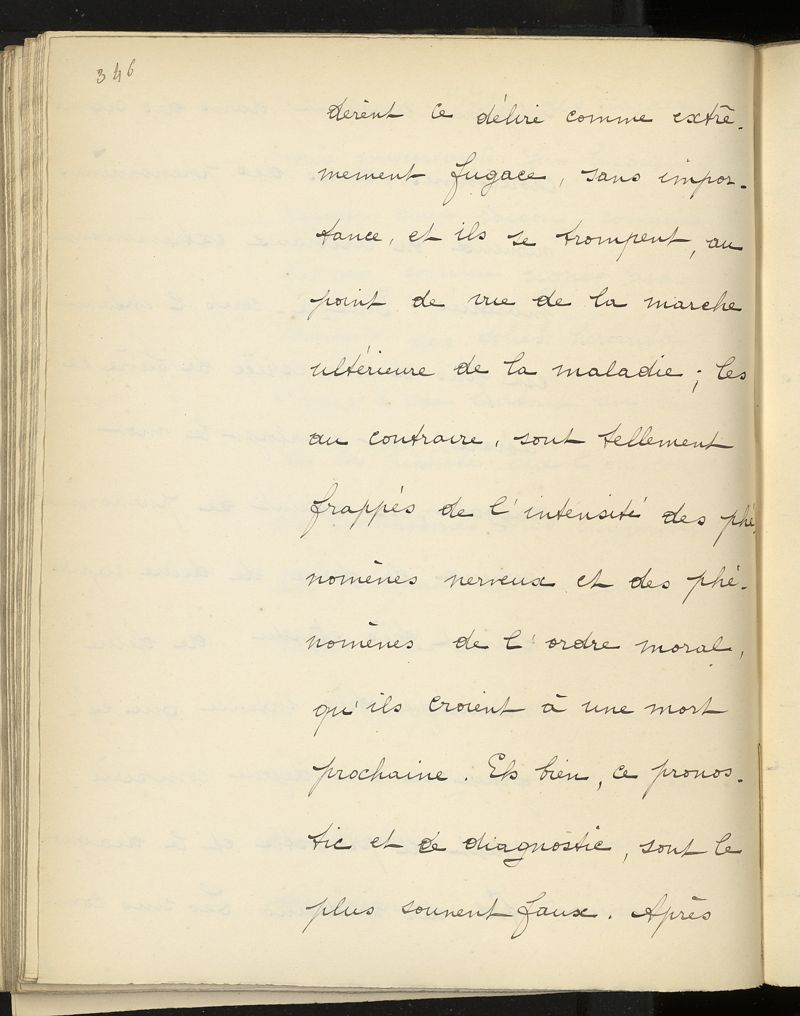 346
dèrent ce délire comme extrê-
mement fugace, sans impor-
tance, et ils se trompent, au
point de vue de la marche
ultérieure de la maladie ; les
au contraire, sont tellement
frappés de l'intensité des phé
nomènes nerveux et des phé-
nomènes de l'ordre moral,
qu'ils croient à une mort
prochaine. Eh bien, ce pronos-
tic et ce diagnostic, sont le
plus souvent faux. Après